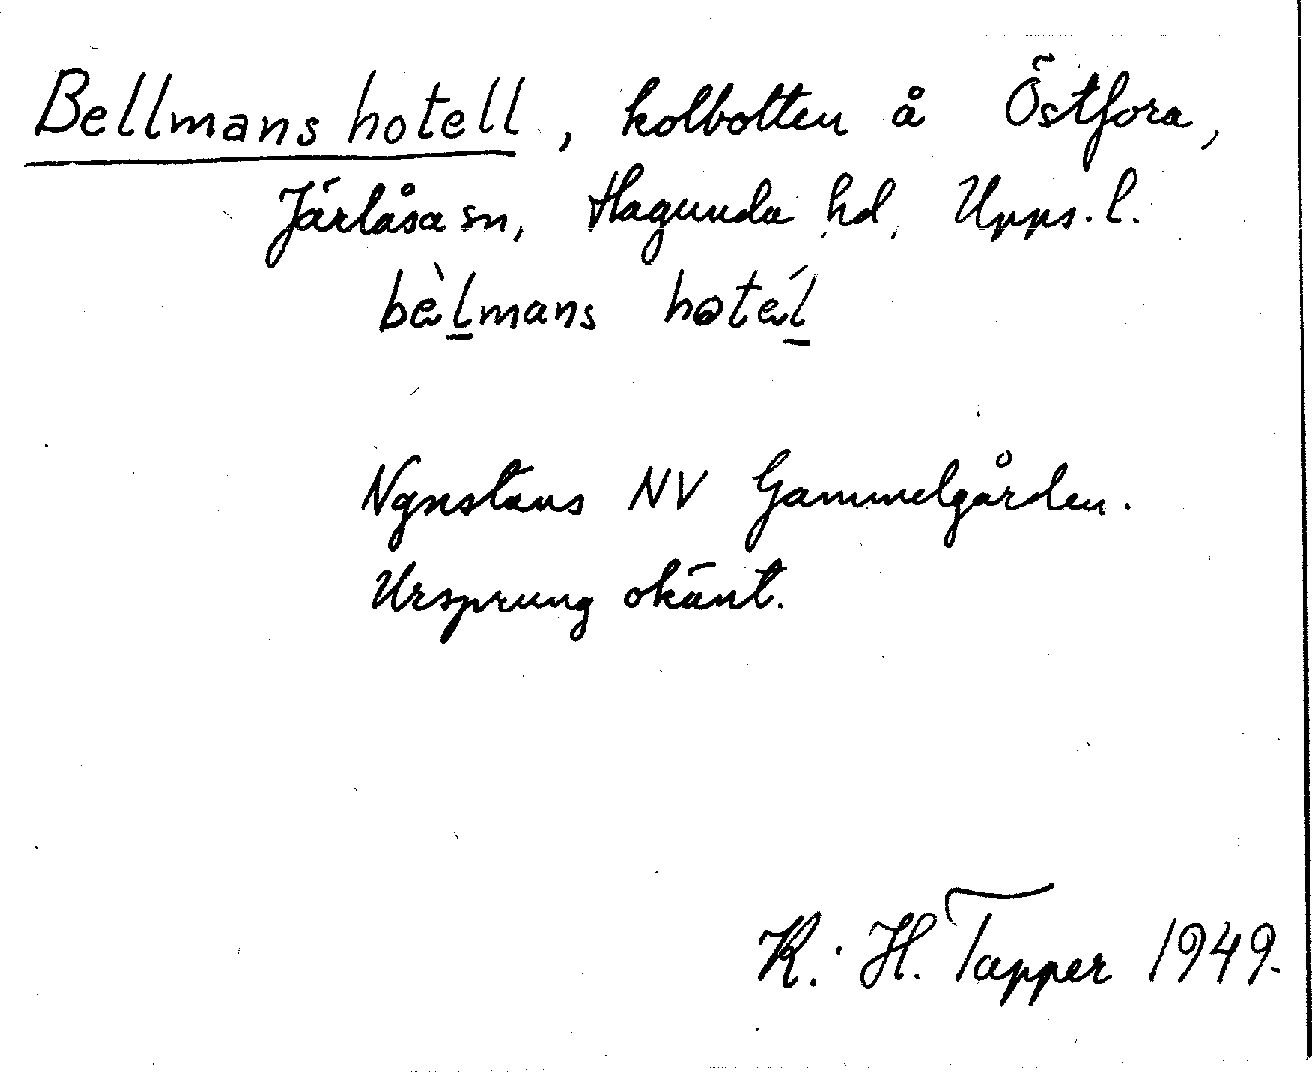 Bellmans hotell, kolbotten å Östfora,
Järlåsa sn, Hagunda hd, Upps. l.
bèlmans hotél
Ngnstans NV Gammelgården.
Ursprung okänt.
K. H. Tapper 1949.